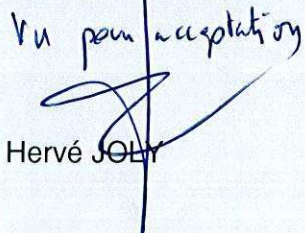 Vu pour acceptation
Hervé JOLY